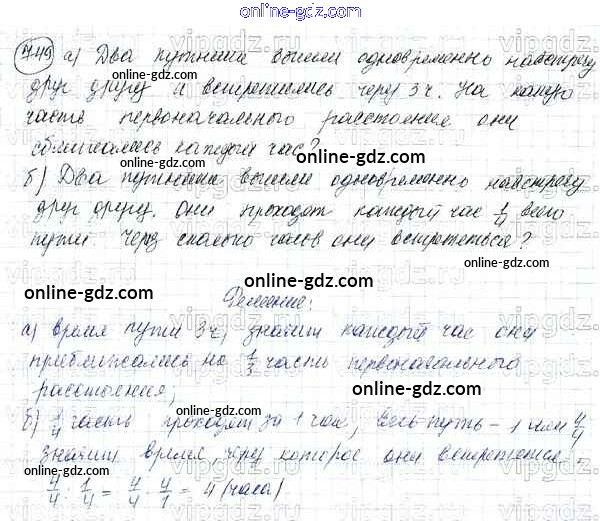 online-gdz.com
749 а) Два путника вышли одновременно навстречу
друг другу и встретились через 3ч. На какую
часть первоначального расстояния они
сближались каждый час?
б) Два путника вышли одновременно навстречу
друг другу. Они проходят каждый час 1/4 всего
пути. Через сколько часов они встретятся?
Решение:
а) время пути 3ч, значит каждый час они
приближались на 1/3 часть первоначального
расстояния;
б) 1/4 часть проходят за 1 час, весь путь - 1 или 4/4
значит время, через которое они встретятся -
4/4 : 1/4 = 4/4 · 4/1 = 4 (часа)
online-gdz.com